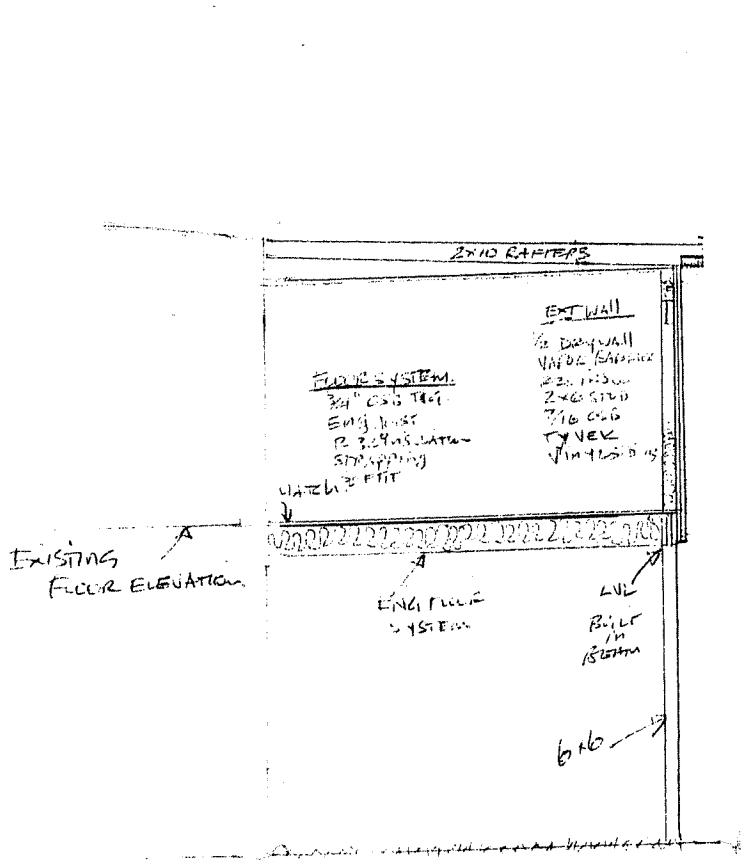 2x10 RAFTERS
EXT WALL
1/2 DRYWALL
VAPOR BARRIER
2x6 STUD
7/16 OSB
TYVEK
VINYL SIDING
FLOOR SYSTEM
3/4" OSB T&G
ENG JOIST
INSULATION
STRAPPING
MATCH
EXISTING
FLOOR ELEVATION
ENG FLOOR
SYSTEM
LVL
BUILT
IN
BEAM
6x6